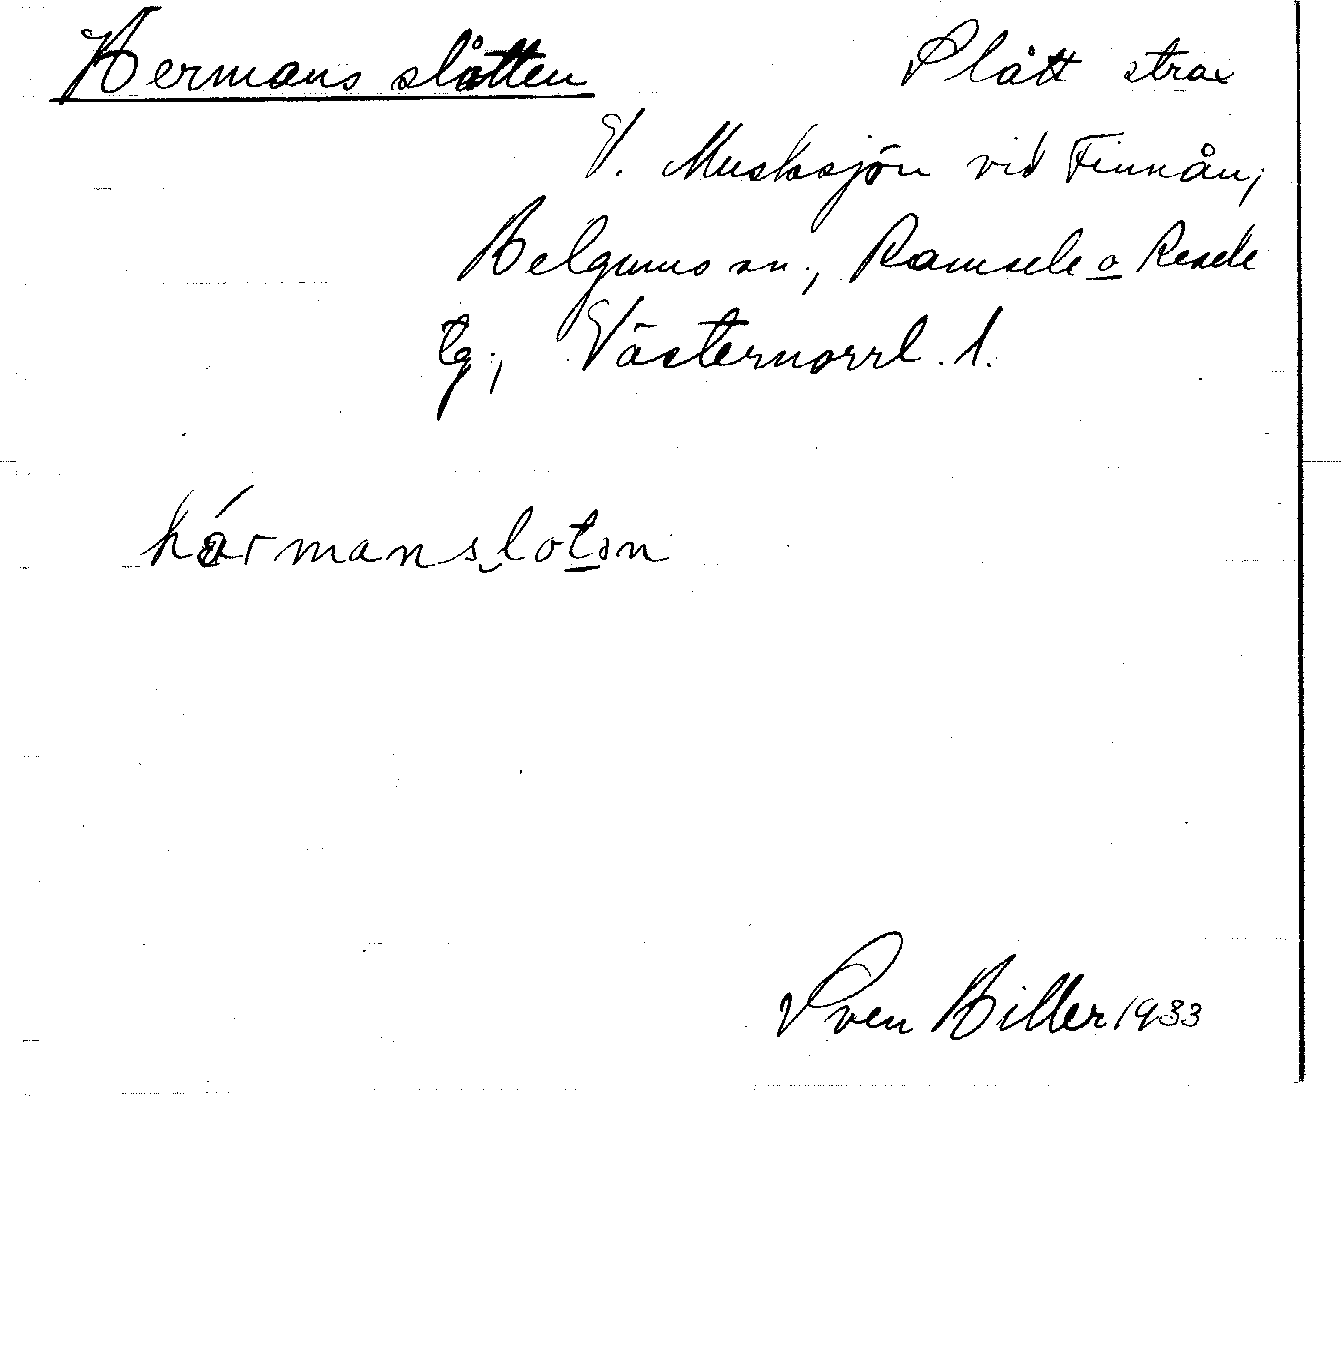 Hermansslåtten Slått strax
V. Musksjön vid Finnån,
Helgums sn., Ramsele o Resele
tg., Västernorrl. l.
hármanslotən
Sven Hiller 1933